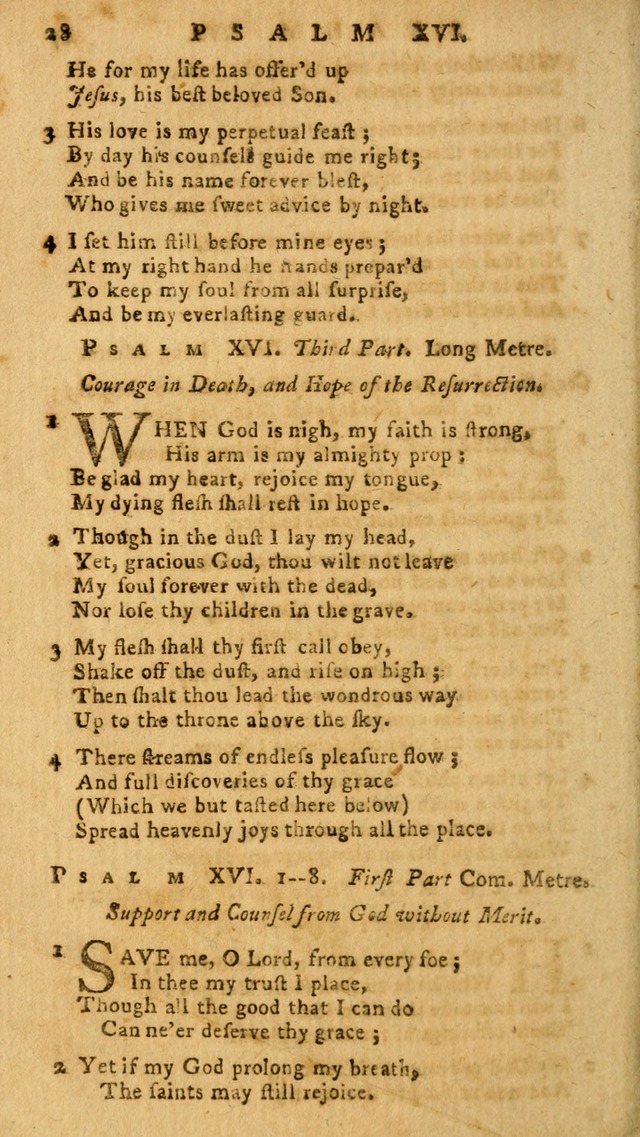 28 PSALM XVI.
He for my life has offer'd up
Jeſus, his beſt beloved Son.
3 His love is my perpetual feaſt ;
By day his counſels guide me right;
And be his name forever bleſt,
Who gives me ſweet advice by night.
4 I ſet him ſtill before mine eyes ;
At my right hand he ſtands prepar'd
To keep my ſoul from all ſurpriſe,
And be my everlaſting guard.
PSALM XVI. Third Part. Long Metre.
Courage in Death, and Hope of the Reſurrection.
1 WHEN God is nigh, my faith is ſtrong,
His arm is my almighty prop :
Be glad my heart, rejoice my tongue,
My dying fleſh ſhall reſt in hope.
2 Though in the duſt I lay my head,
Yet, gracious God, thou wilt not leave
My ſoul forever with the dead,
Nor loſe thy children in the grave.
3 My fleſh ſhall thy firſt call obey,
Shake off the duſt, and riſe on high ;
Then ſhalt thou lead the wondrous way
Up to the throne above the ſky.
4 There ſtreams of endleſs pleaſure flow ;
And full diſcoveries of thy grace
(Which we but taſted here below)
Spread heavenly joys through all the place.
PSALM XVI. 1--8. Firſt Part Com. Metre.
Support and Counſel from God without Merit.
1 SAVE me, O Lord, from every foe ;
In thee my truſt I place,
Though all the good that I can do
Can ne'er deſerve thy grace ;
2 Yet if my God prolong my breath,
The ſaints may ſtill rejoice.